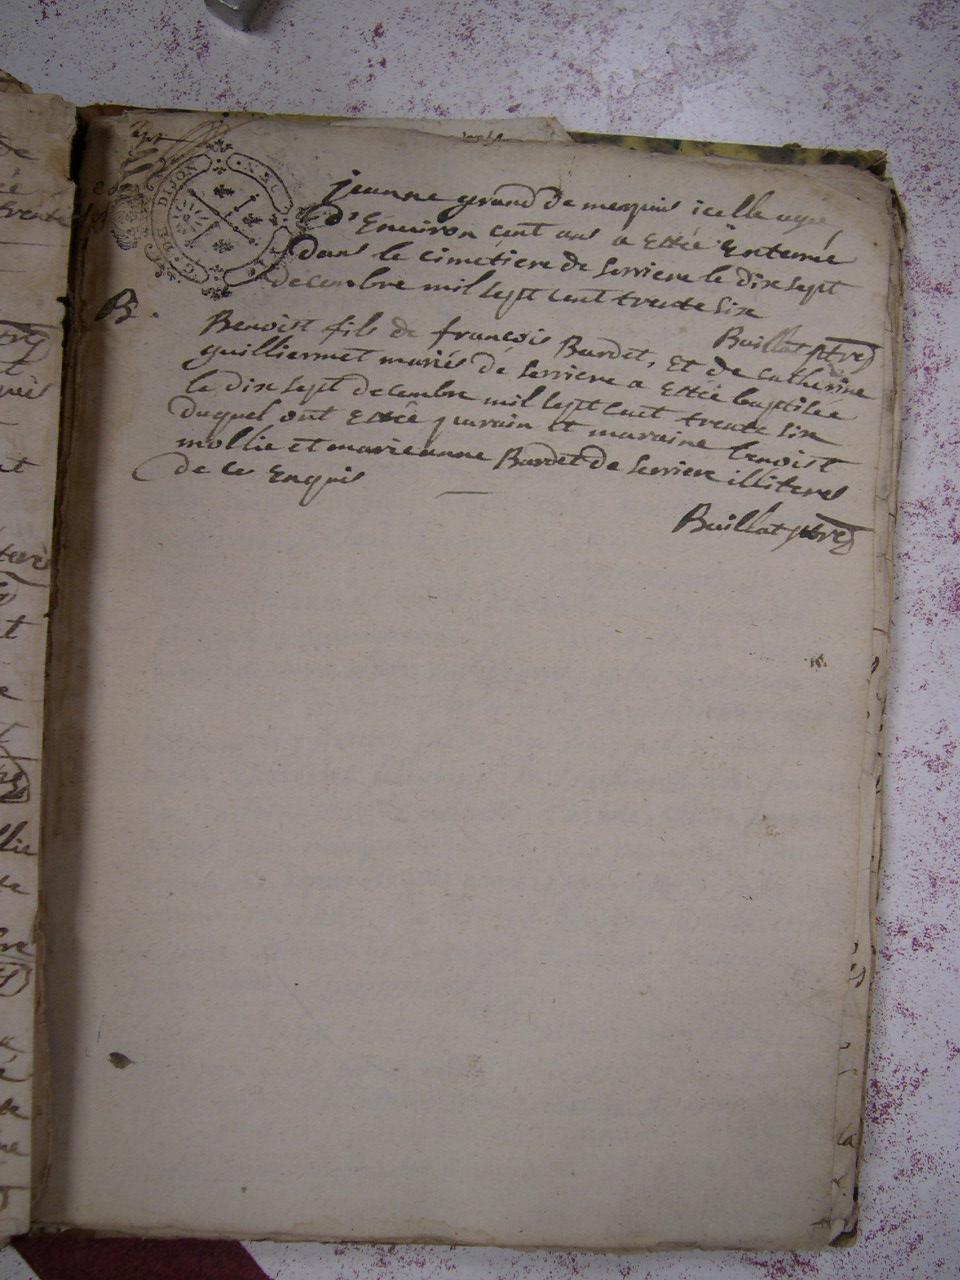 G. DE DIJON
jeanne grand de merpuis icelle agee
d'Environ cent ans a Esté Enterreé
Dans le cimetiere de serriere le dix sept
decembre mil sept cent trente six
Buillat ptre
B.
Benoist fils de françois Bardet, et de catherine
guilliermet mariés de serriere a Esté baptisee
le dix sept decembre mil sept cent trente six
Duquel ont Esteé parain et maraine benoist
mollie et marieanne Bardet de serriere illiteres
de ce Enquis
Buillat ptre